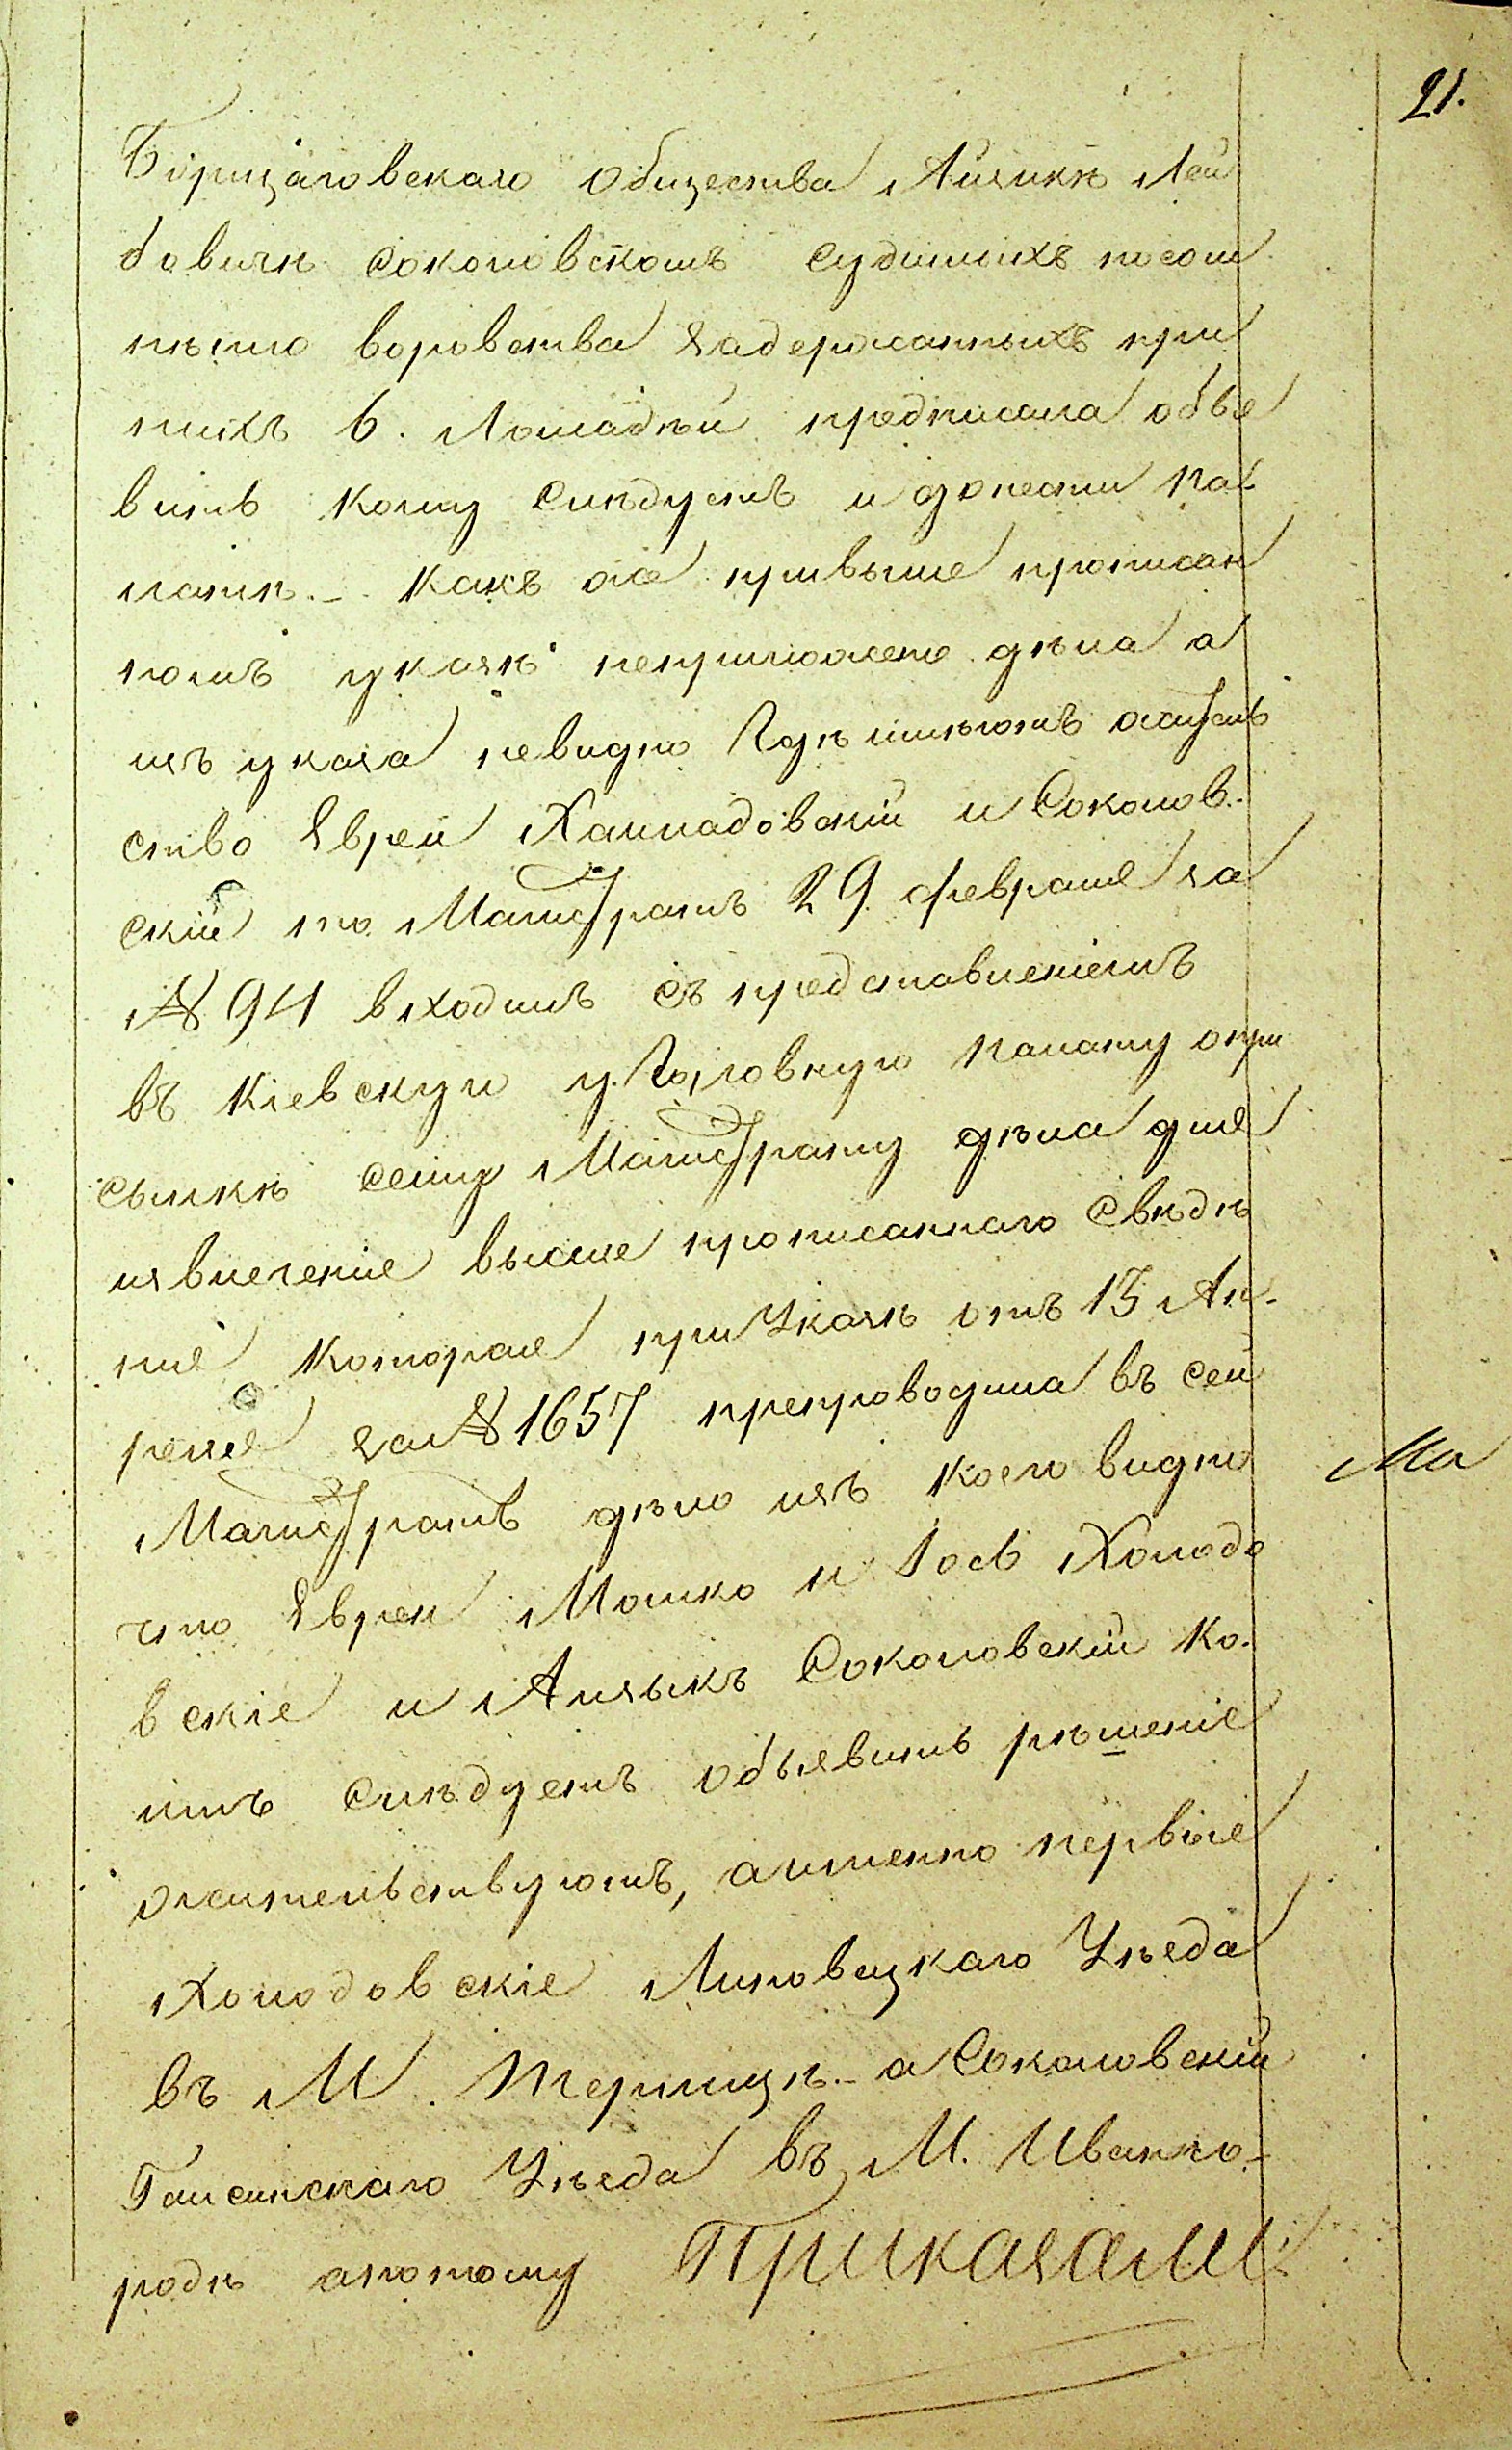 21.
Борщаговскаго общества Айзикѣ Лей
бовичѣ Соколовскомъ судимыхъ посом
нѣнію воровства задержанныхъ при
нихъ 6. Лошадѣй предписала объя
вить кому слѣдуетъ и донести Па
латѣ.- Какъ же привыше прописан
номъ указѣ неприложено дѣла а
изъ указа невидно гдѣ имѣютъ жител
ство Евреи Халладовскій и Соколов-
скій то Магистратъ 29. февраля за
№ 94 входилъ съ представленіемъ
въ Кіевскую уголовную Палату опри
сылкѣ сему Магистрату дѣла для
извлеченіе высше прописаннаго свѣдѣ
ніе которая при Указѣ отъ 13 Ап-
реля за № 1657 препроводила въ сей
Магистратъ дѣло изъ коего видно
что Евреи Мошко и Іось Холодо
вскіе и Айзыкъ Соколовскій ко-
имъ слѣдуетъ объявить рѣшеніе
жительствуютъ, аименно первые
Холодовскіе Липовецкаго Уѣзда
въ М. Терлицѣ.- а Соколовскій
Гайсинскаго Уѣзда въ М. Иванго-
родѣ апотому Приказали:
Ма